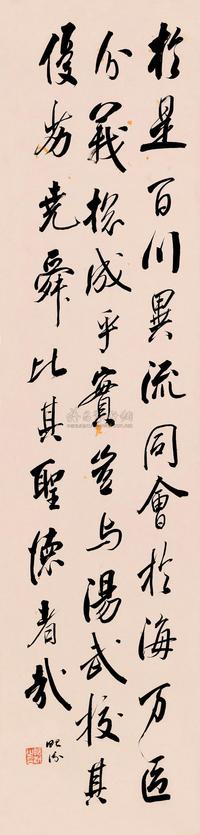 於是百川異流同會於海万區
分義揔成乎實豈与湯武校其
優劣堯舜比其聖德者哉